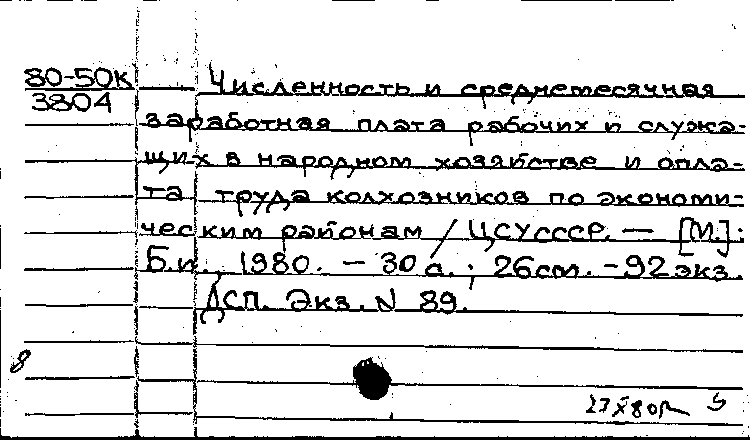 80-50к
3804
Численность и среднемесячная
заработная плата рабочих и служа-
щих в народном хозяйстве и опла-
та труда колхозников по экономи-
ческим районам / ЦСУ СССР. — [М.]:
Б.и., 1980. - 30 с.; 26см. - 92 экз.
ДСП. Экз. N 89.
8